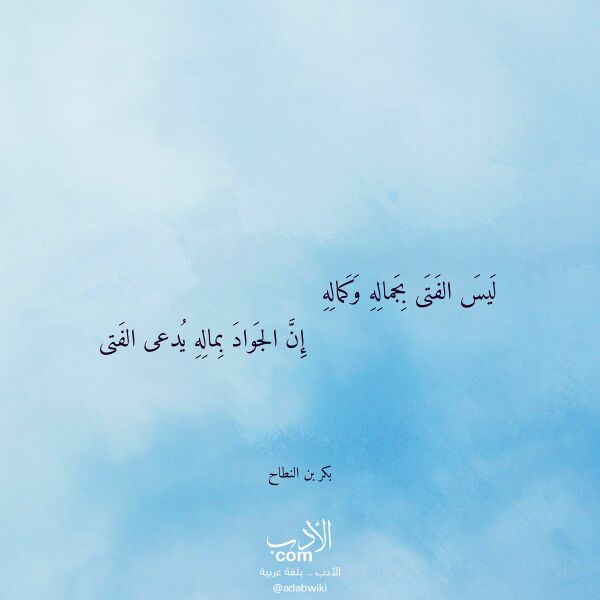 لَيسَ الفَتَى بِجَمالِهِ وَكَمالِهِ
إِنَّ الجَوادَ بِمالِهِ يُدعى الفَتى
بكر بن النطاح
الأدب
com
الأدب .. بلغة عربية
@adabwiki